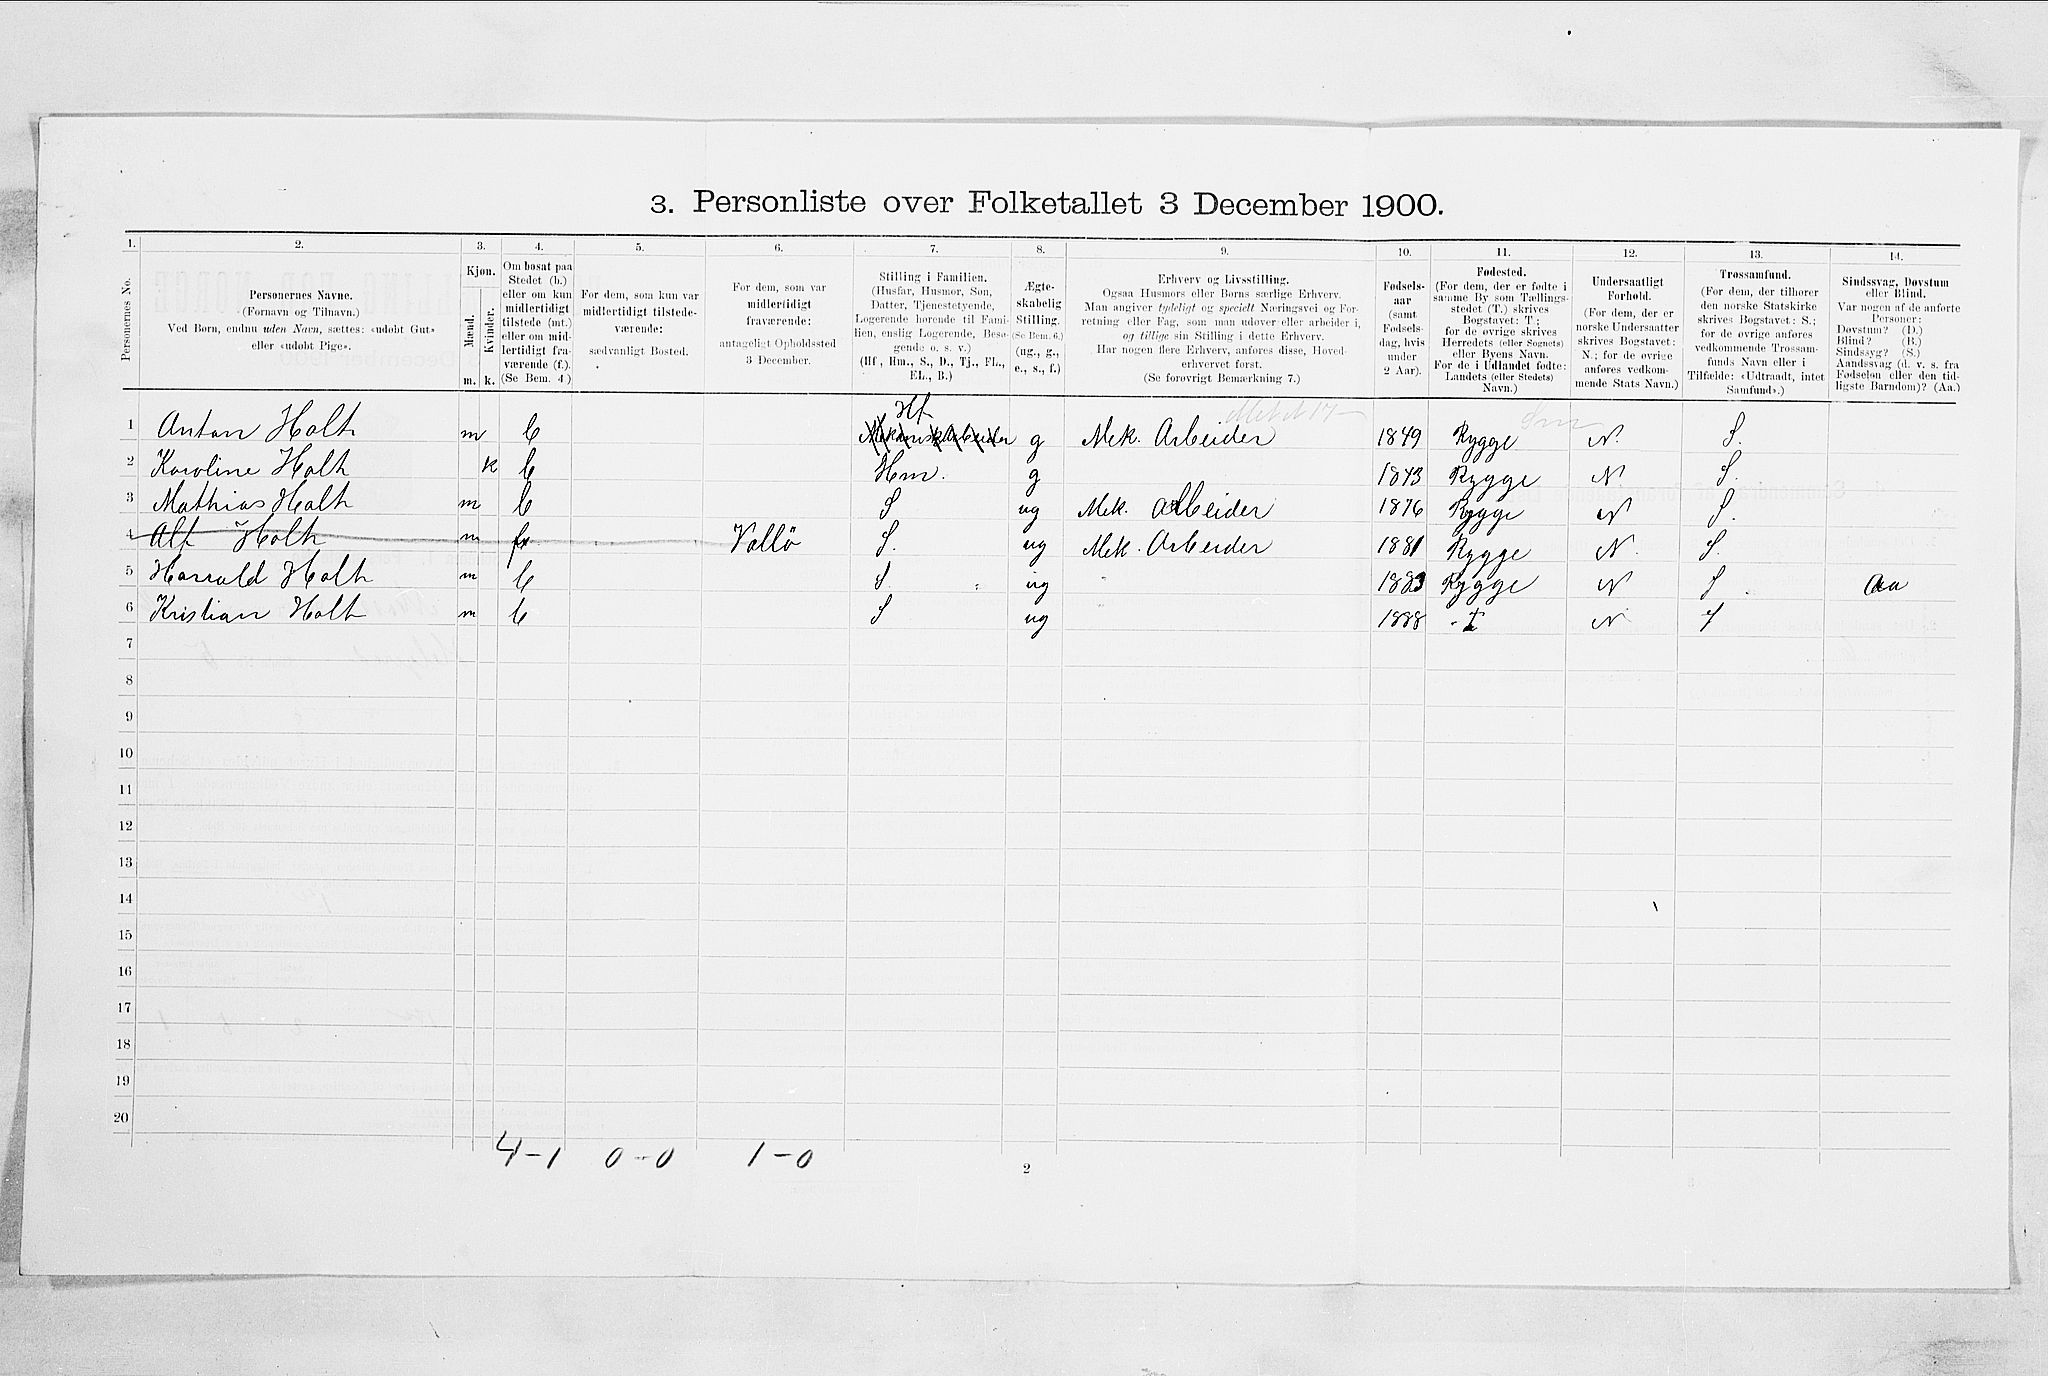 3. Personliste over Folketallet 3 December 1900.
1. 2. 3. 4. 5. 6. 7. 8. 9. 10. 11. 12. 13. 14.
Personernes No.
Personernes Navne.
(Fornavn og Tilnavn.)
Ved Børn, endnu uden Navn, sættes: «udøbt Gut»
eller «udøbt Pige».
Kjøn.
Mænd.
Kvinder.
m. k.
Om bosat paa
Stedet (b.)
eller om kun
midlertidigt
tilstede (mt.)
eller om mid-
lertidigt fra-
værende (f.).
(Se Bem. 4)
For dem, som kun var
midlertidigt tilstede-
værende:
sædvanligt Bosted.
For dem, som var
midlertidigt
fraværende:
antageligt Opholdssted
3 December.
Stilling i Familien.
(Husfar, Husmor, Søn,
Datter, Tjenestetyende,
Logerende hørende til Fami-
lien, enslig Logerende, Besø-
gende o. s. v.)
(Hf., Hm., S., D., Tj., FL.,
EL., B.)
Ægte-
skabelig
Stilling.
(Se Bem. 6.)
(ug., g.,
e., s., f.)
Erhverv og Livsstilling.
Ogsaa Husmors eller Børns særlige Erhverv.
Man angiver tydeligt og specielt Næringsvei og For-
retning eller Fag, som man udøver eller arbeider i,
og tillige sin Stilling i dette Erhverv.
Har nogen flere Erhverv, anføres disse, Hoved-
erhvervet først.
(Se forøvrigt Bemærkning 7.)
Fødsels-
aar
(samt
Fødsels-
dag, hvis
under
2 Aar).
Fødested.
(For dem, der er fødte i
samme By som Tællings-
stedet (T.) skrives
Bogstavet: T.;
for de øvrige skrives
Herredets (eller Sognets)
eller Byens Navn.
For de i Udlandet fødte:
Landets (eller Stedets)
Navn.)
Undersaatligt
Forhold.
(For dem, der er
norske Undersaatter
skrives Bogstavet:
N.; for de øvrige
anføres vedkom-
mende Stats Navn.)
Trossamfund.
(For dem, der tilhører
den norske Statskirke
skrives Bogstavet: S.;
for de øvrige anføres
vedkommende Trossam-
funds Navn eller i
Tilfælde: «Udtraadt, intet
Samfund».)
Sindssvag, Døvstum
eller Blind.
Var nogen af de anførte
Personer:
Døvstum? (D.)
Blind? (B.)
Sindssyg? (S.)
Aandssvag (d. v. s. fra
Fødselen eller den tid-
ligste Barndom)? (Aa.)
Hf.
1 Anton Holth m b Mekanisk Arbeider g Mek. Arbeider 1849 Rygge N. S.
2 Karoline Holth k b Hm. g 1843 Rygge N S.
3 Mathias Holth m b S ug Mek. Arbeider 1876 Rygge N S.
4 Alf Holth m f Vallö S. ug Mek. Arbeider 1881 Rygge N. S.
5 Harrald Holth m b S. ug 1883 Rygge N S. Aa
6 Kristian Holth m b S ug 1888 T N S
7
8
9
10
11
12
13
14
15
16
17
18
19
20
4-1 0-0 1-0
2